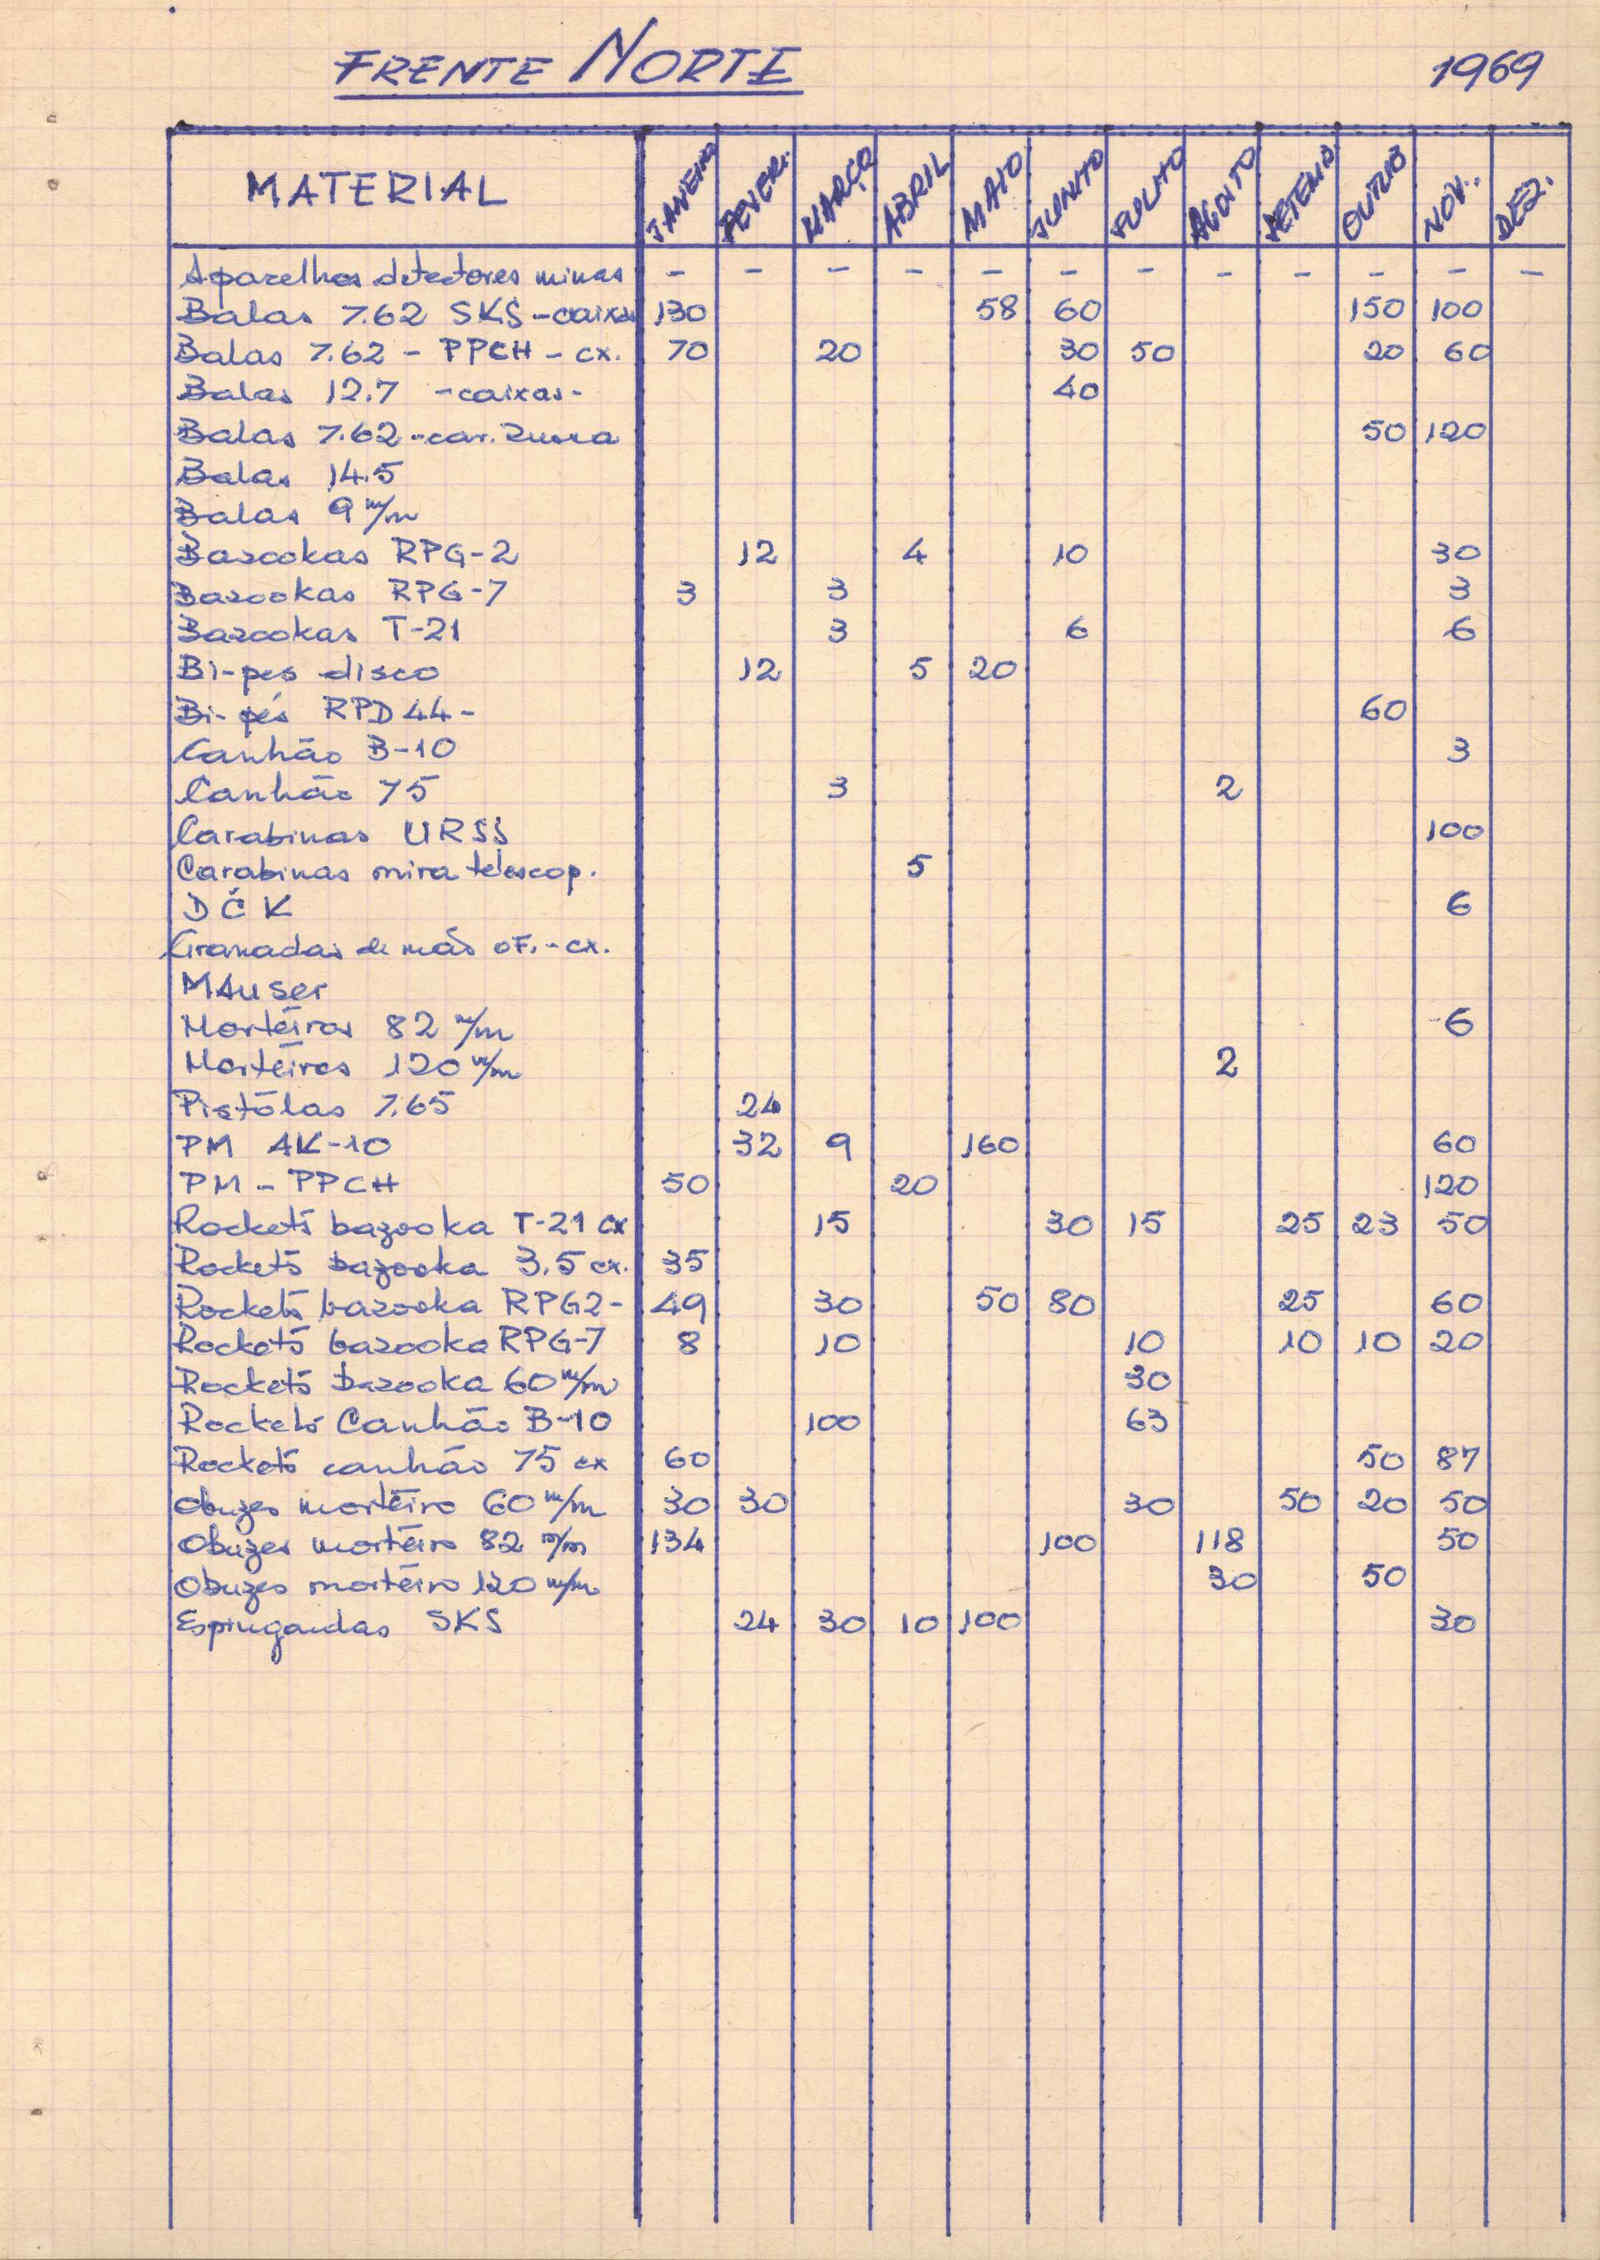 FRENTE NORTE 1969
MATERIAL JANEIRO FEVER. MARÇO ABRIL MAIO JUNHO JULHO AGOSTO SETEMB OUTUB NOV. DEZ.
Aparelhos detectores minas - - - - - - - - - - - -
Balas 7.62 SKS - caixas 130 58 60 150 100
Balas 7.62 - PPCH - cx. 70 20 30 50 20 60
Balas 12.7 - caixas - 40
Balas 7.62 - car. Russa 50 120
Balas 14.5
Balas 9 m/m
Bazookas RPG-2 12 4 10 30
Bazookas RPG-7 3 3 3
Bazookas T-21 3 6 6
Bi-pes disco 12 5 20
Bi-pés RPD 44 - 60
Canhão B-10 3
Canhão 75 3 2
Carabinas URSS 100
Carabinas mira telescop. 5
DČK 6
Granadas de mão OF. - cx.
MAuser
Mortéiros 82 m/m 6
Mortéiros 120 m/m 2
Pistólas 7.65 24
PM AK-10 32 9 160 60
PM - PPCH 50 20 120
Rockets bazooka T-21 cx 15 30 15 25 23 50
Rockets bazooka 3.5 cx. 35
Rockets bazooka RPG2 - 49 30 50 80 25 60
Rockets bazooka RPG-7 8 10 10 10 10 20
Rockets bazooka 60 m/m 30
Rockets Canhão B-10 100 63
Rockets canhão 75 cx 60 50 87
Obuzes mortéiro 60 m/m 30 30 30 50 20 50
Obuzes mortéiro 82 m/m 134 100 118 50
Obuzes mortéiro 120 m/m 30 50
Espingardas SKS 24 30 10 100 30